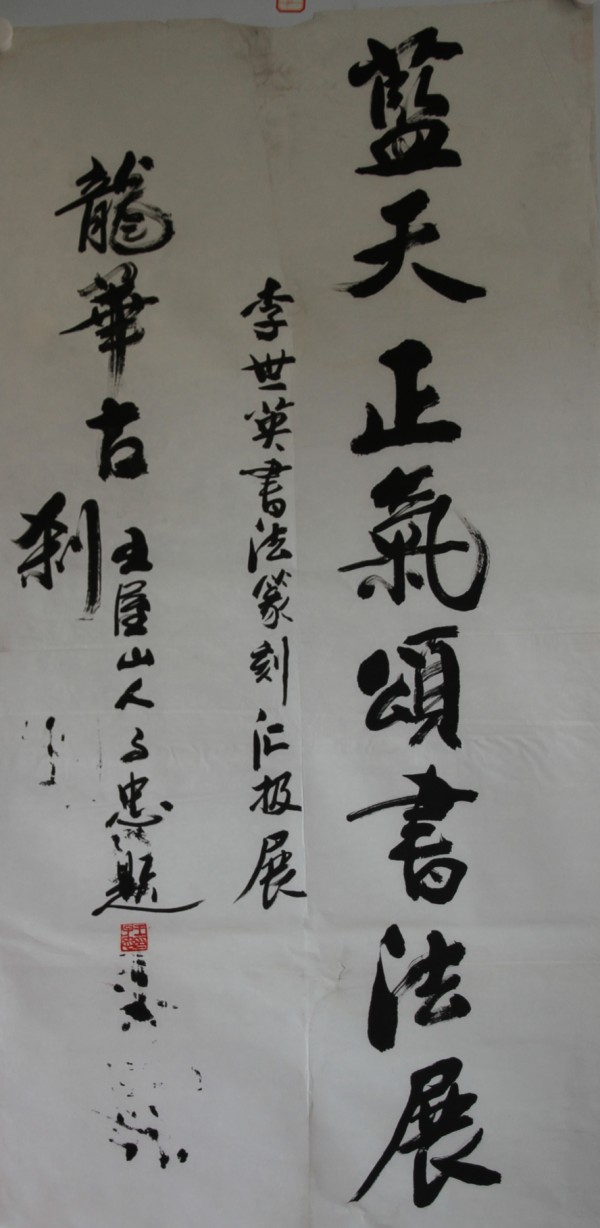 藍天正氣頌書法展
李世英書法篆刻汇报展
龍華古刹
王屋山人子忠題